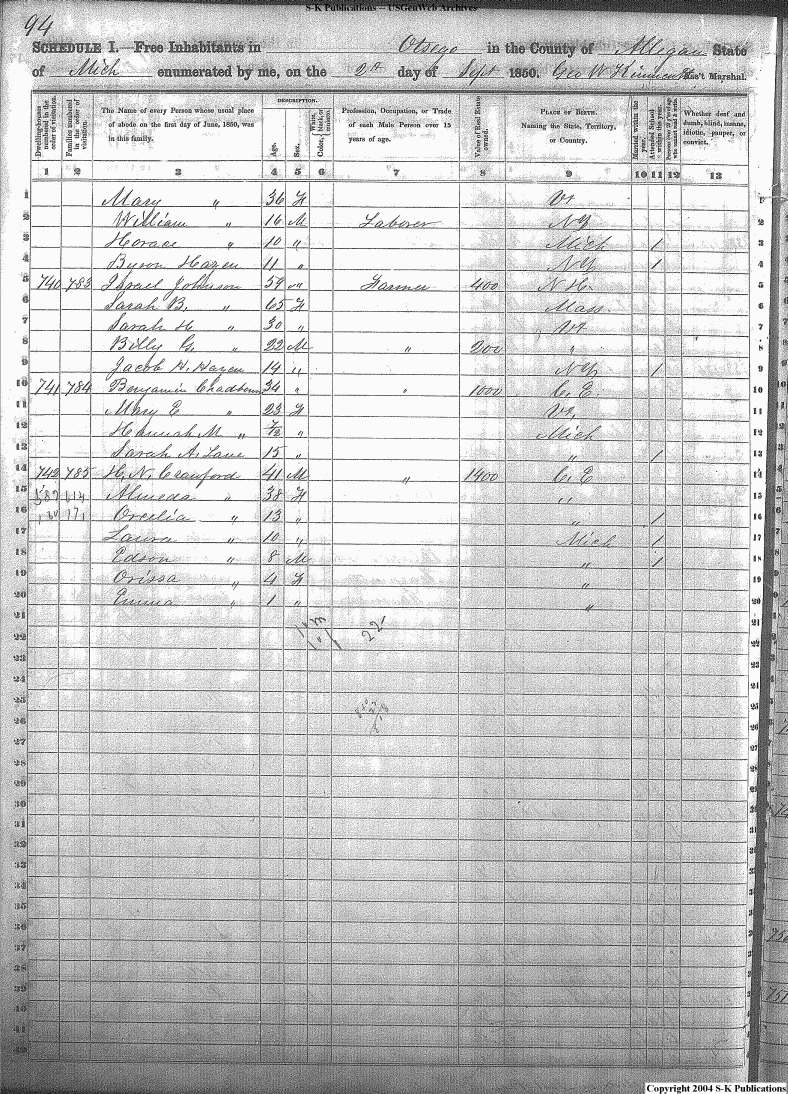 S-K Publications – USGenWeb Archives
94
SCHEDULE I.—Free Inhabitants in Otsego in the County of Allegan State
of Mich enumerated by me, on the 2d day of Sept 1850. Geo W Ass't Marshal.
Dwelling-houses numbered in the order of visitation.
Families numbered in the order of visitation.
The Name of every Person whose usual place of abode on the first day of June, 1850, was in this family.
DESCRIPTION.
Age.
Sex.
Color, White, black or mulatto.
Profession, Occupation, or Trade of each Male Person over 15 years of age.
Value of Real Estate owned.
PLACE OF BIRTH. Naming the State, Territory, or Country.
Married within the year.
Attended School within the year.
Persons over 20 y'rs of age who cannot read & write.
Whether deaf and dumb, blind, insane, idiotic, pauper, or convict.
1 2 3 4 5 6 7 8 9 10 11 12 13
1 Mary " 36 F Vt 1
2 William " 16 M Laborer NY 2
3 Horace " 10 " Mich 1 3
4 Byron Hazen 11 " NY 1 4
5 740 783 Israel Johnson 59 " Farmer 400 N H. 5
6 Sarah B. " 65 F Mass. 6
7 Sarah H " 30 " Vt 7
8 Billy G. " 22 M " 200 " 8
9 Jacob H. Hazen 14 " NY 1 9
10 741 784 Benjamin 34 " " 1000 C. E 10
11 Mary E " 23 F Vt. 11
12 Hannah M " 7/12 " Mich 12
13 Sarah A. Lane 15 " " 1 13
14 742 785 H. N. Crawford 41 M " 1400 C. E 14
15 587 614 Almeda " 38 F " 15
16 171 Orcelia " 13 " " 1 16
17 Laura " 10 " Mich 1 17
18 Edson " 8 M " 1 18
19 Orissa " 4 F " 19
20 Emma " 1 " " 20
21 21
22 22 22
23 23
24 24
25 25
26 26
27 27
28 28
29 29
30 30
31 31
32 32
33 33
34 34
35 35
36 36
37 37
38 38
39 39
40 40
41 41
42 42
Copyright 2004 S-K Publications